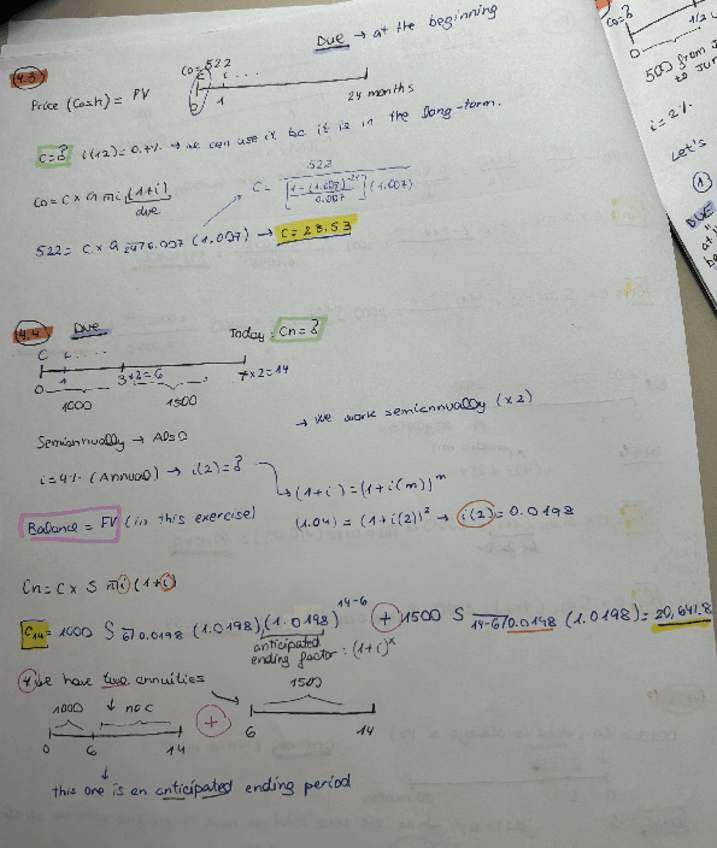 Due → at the beginning
4.3
C0=522
0 1 24 months
Price (Cash) = PV
C=? i(12)= 0.7% → we can use it bc it is in the long-term.
C0 = C x a n̅i (1+i)
due
C = 522 / [1-(1.007)^-24 / 0.007] (1.007)
522 = C x a 24̅ 0.007 (1.007) → C = 23.53
4.4 Due Today: Cn=?
C
0 1 3x2=6 7x2=14
1000 1500
→ We work semiannually (x2)
Semiannually →
i=4% (Annual) → i(2)=?
↳ (1+i) = (1+i(m))^m
Balance = FV (in this exercise)
(1.04) = (1+i(2))² → i(2) = 0.0198
Cn = C x S n̅i (1+i)
C14 = 1000 S 6̅ 0.0198 (1.0198) (1.0198)^14-6 + 1500 S 14-6̅ 0.0198 (1.0198) = 20,641.8
anticipated
ending factor: (1+i)^x
* We have two annuities
1000 ↓ no C + 1500
0 6 14 6 14
↓
this one is an anticipated ending period
C0=?
0 1/2
500 from
to
i=2%
Let's
1
DUE
at